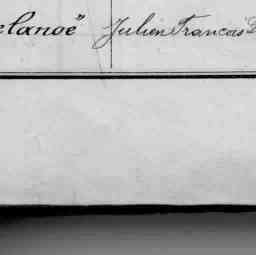 elanoë" Julien Francois